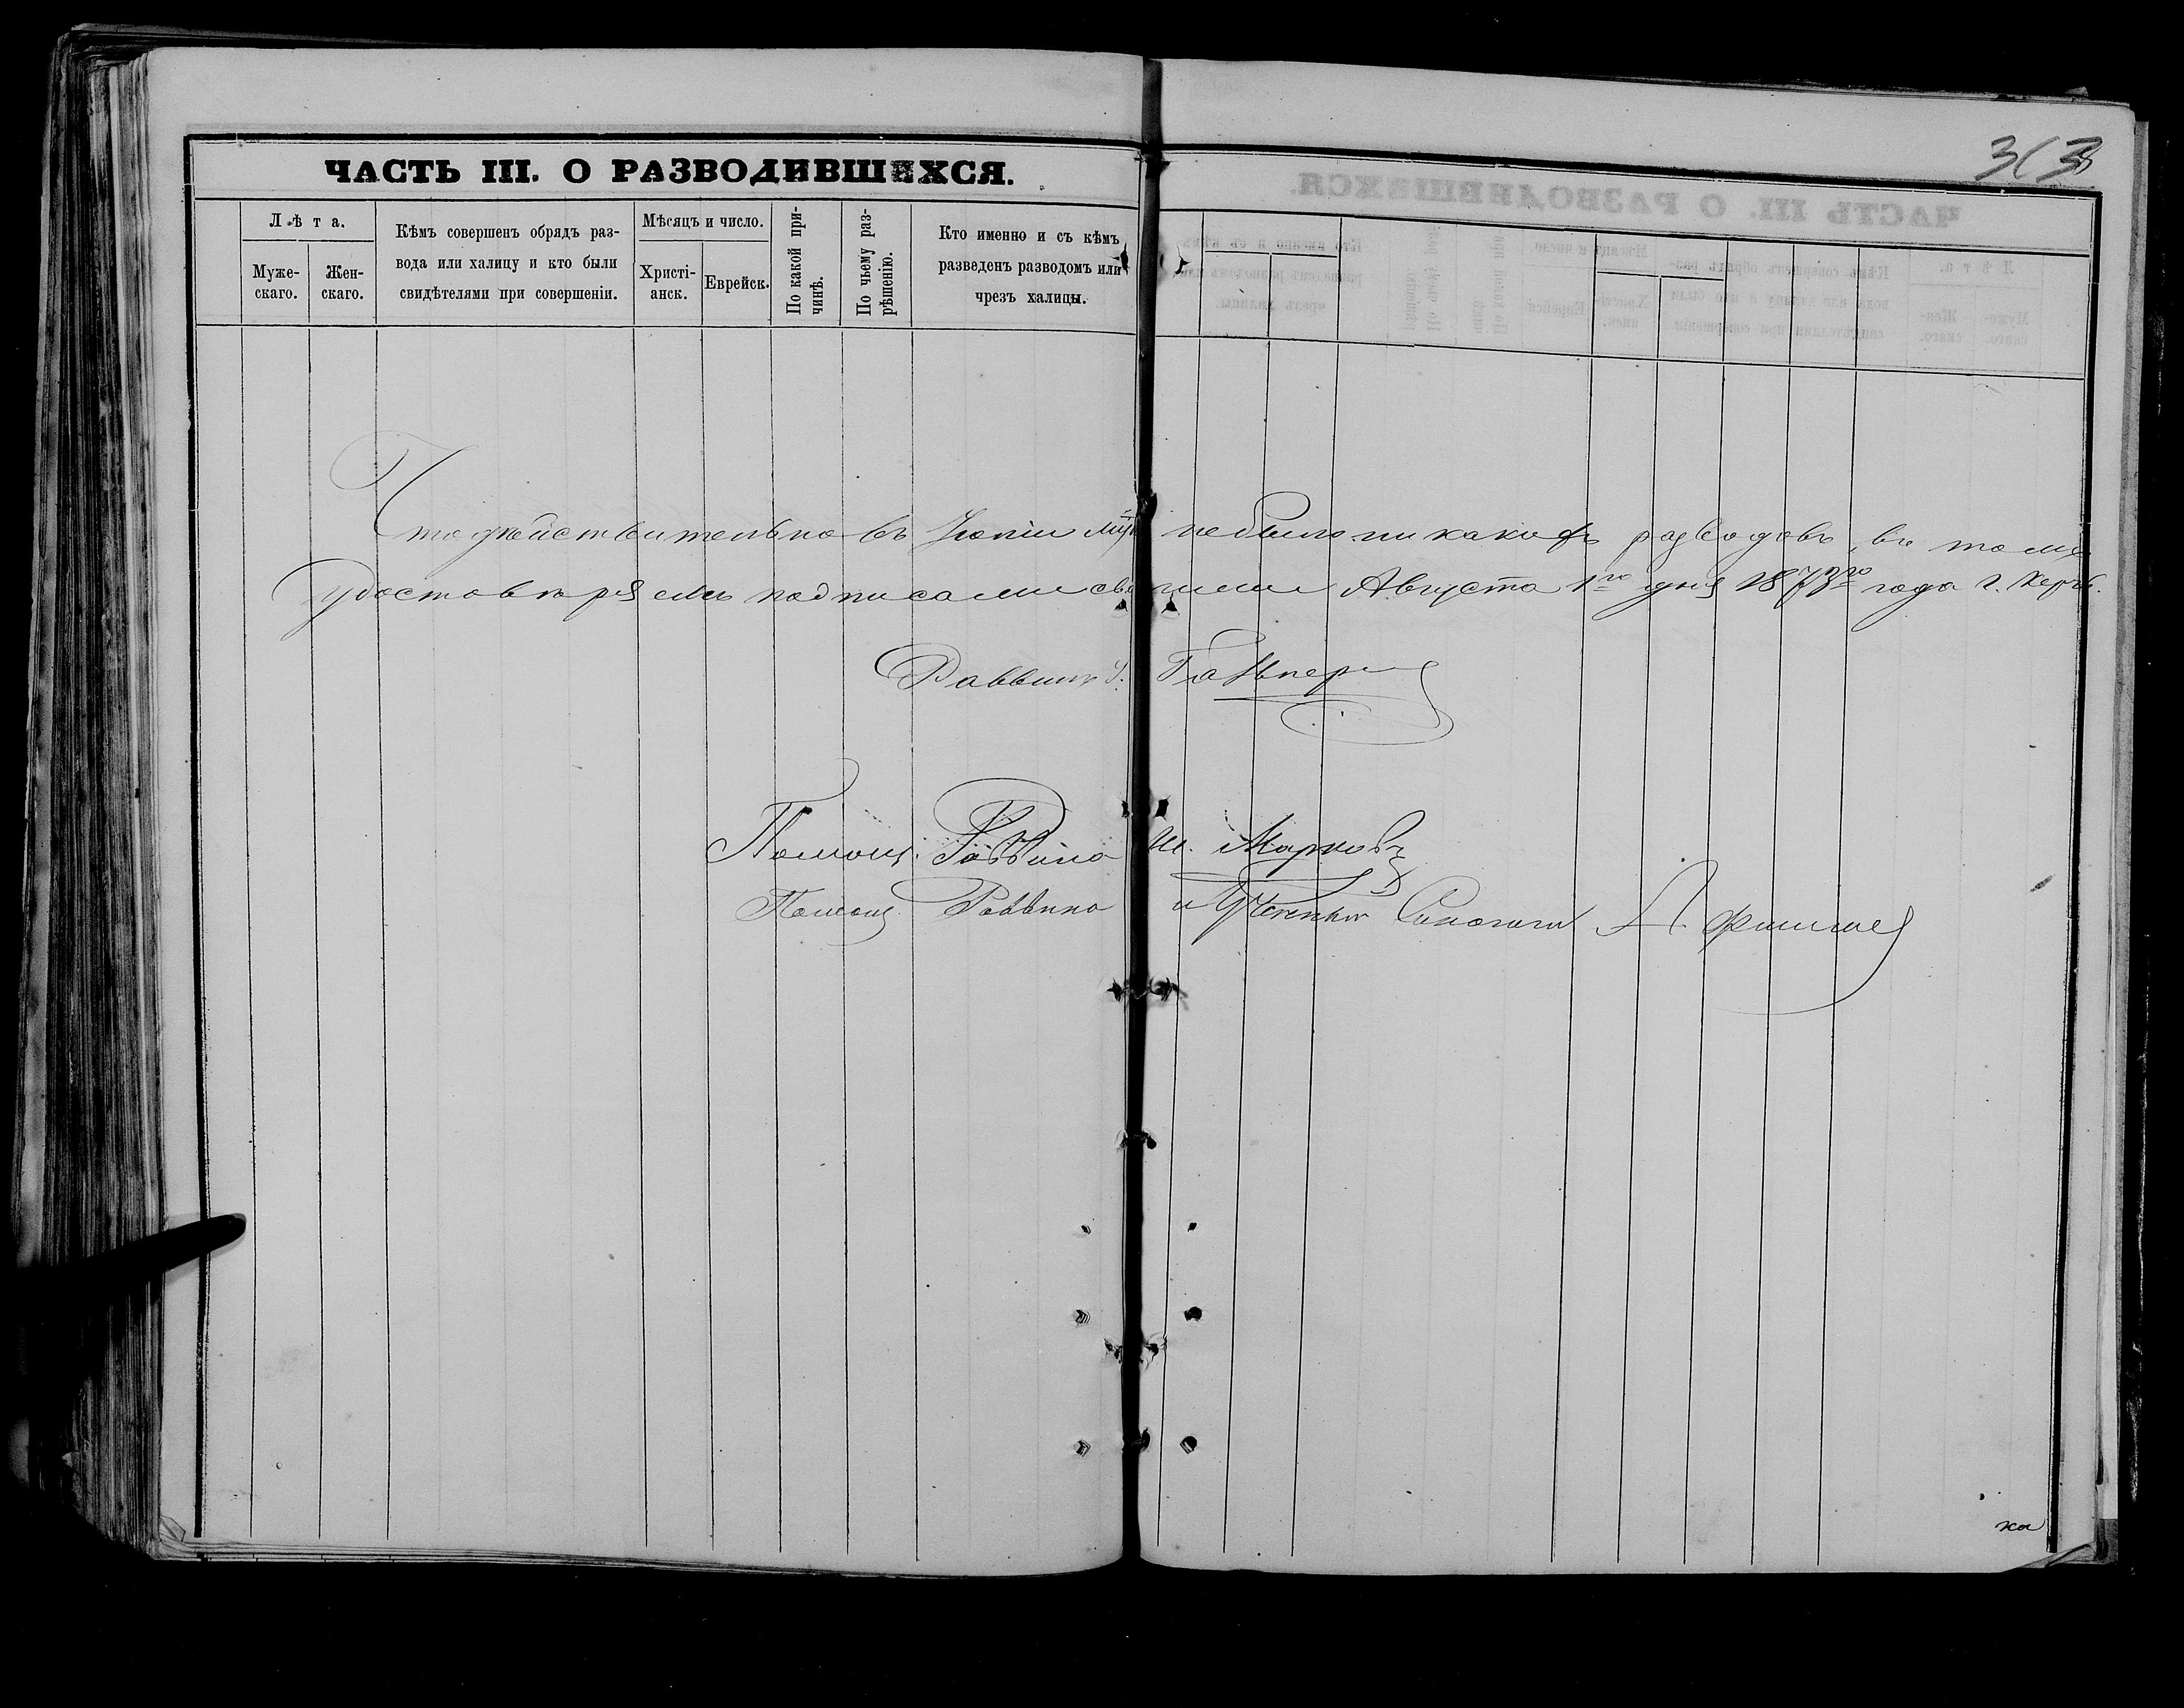 363
ЧАСТЬ III. О РАЗВОДИВШИХСЯ.
Лѣта.
Муже-
скаго.
Жен-
скаго.
Кѣмъ совершенъ обрядъ раз-
вода или халицу и кто были
свидѣтелями при совершеніи.
Мѣсяцъ и число.
Христі-
анск.
Еврейск.
По какой при-
чинѣ.
По чьему раз-
рѣшенію.
Кто именно и съ кѣмъ
разведенъ разводомъ или
чрезъ халицы.
Что дѣйствительно въ Іюлѣ м-цѣ небыло никакихъ разводовъ, въ томъ
удостовѣряемъ подписами своими Августа 1го дня 1873го года г. Керчь.
Раввинъ Гальпер
Помощ. Раввина М. Марковъ
Помощ. Раввина и Ученый Синагоги